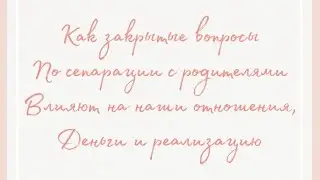 Как закрытые вопросы
По сепарации с родителями
Влияют на наши отношения,
Деньги и реализацию